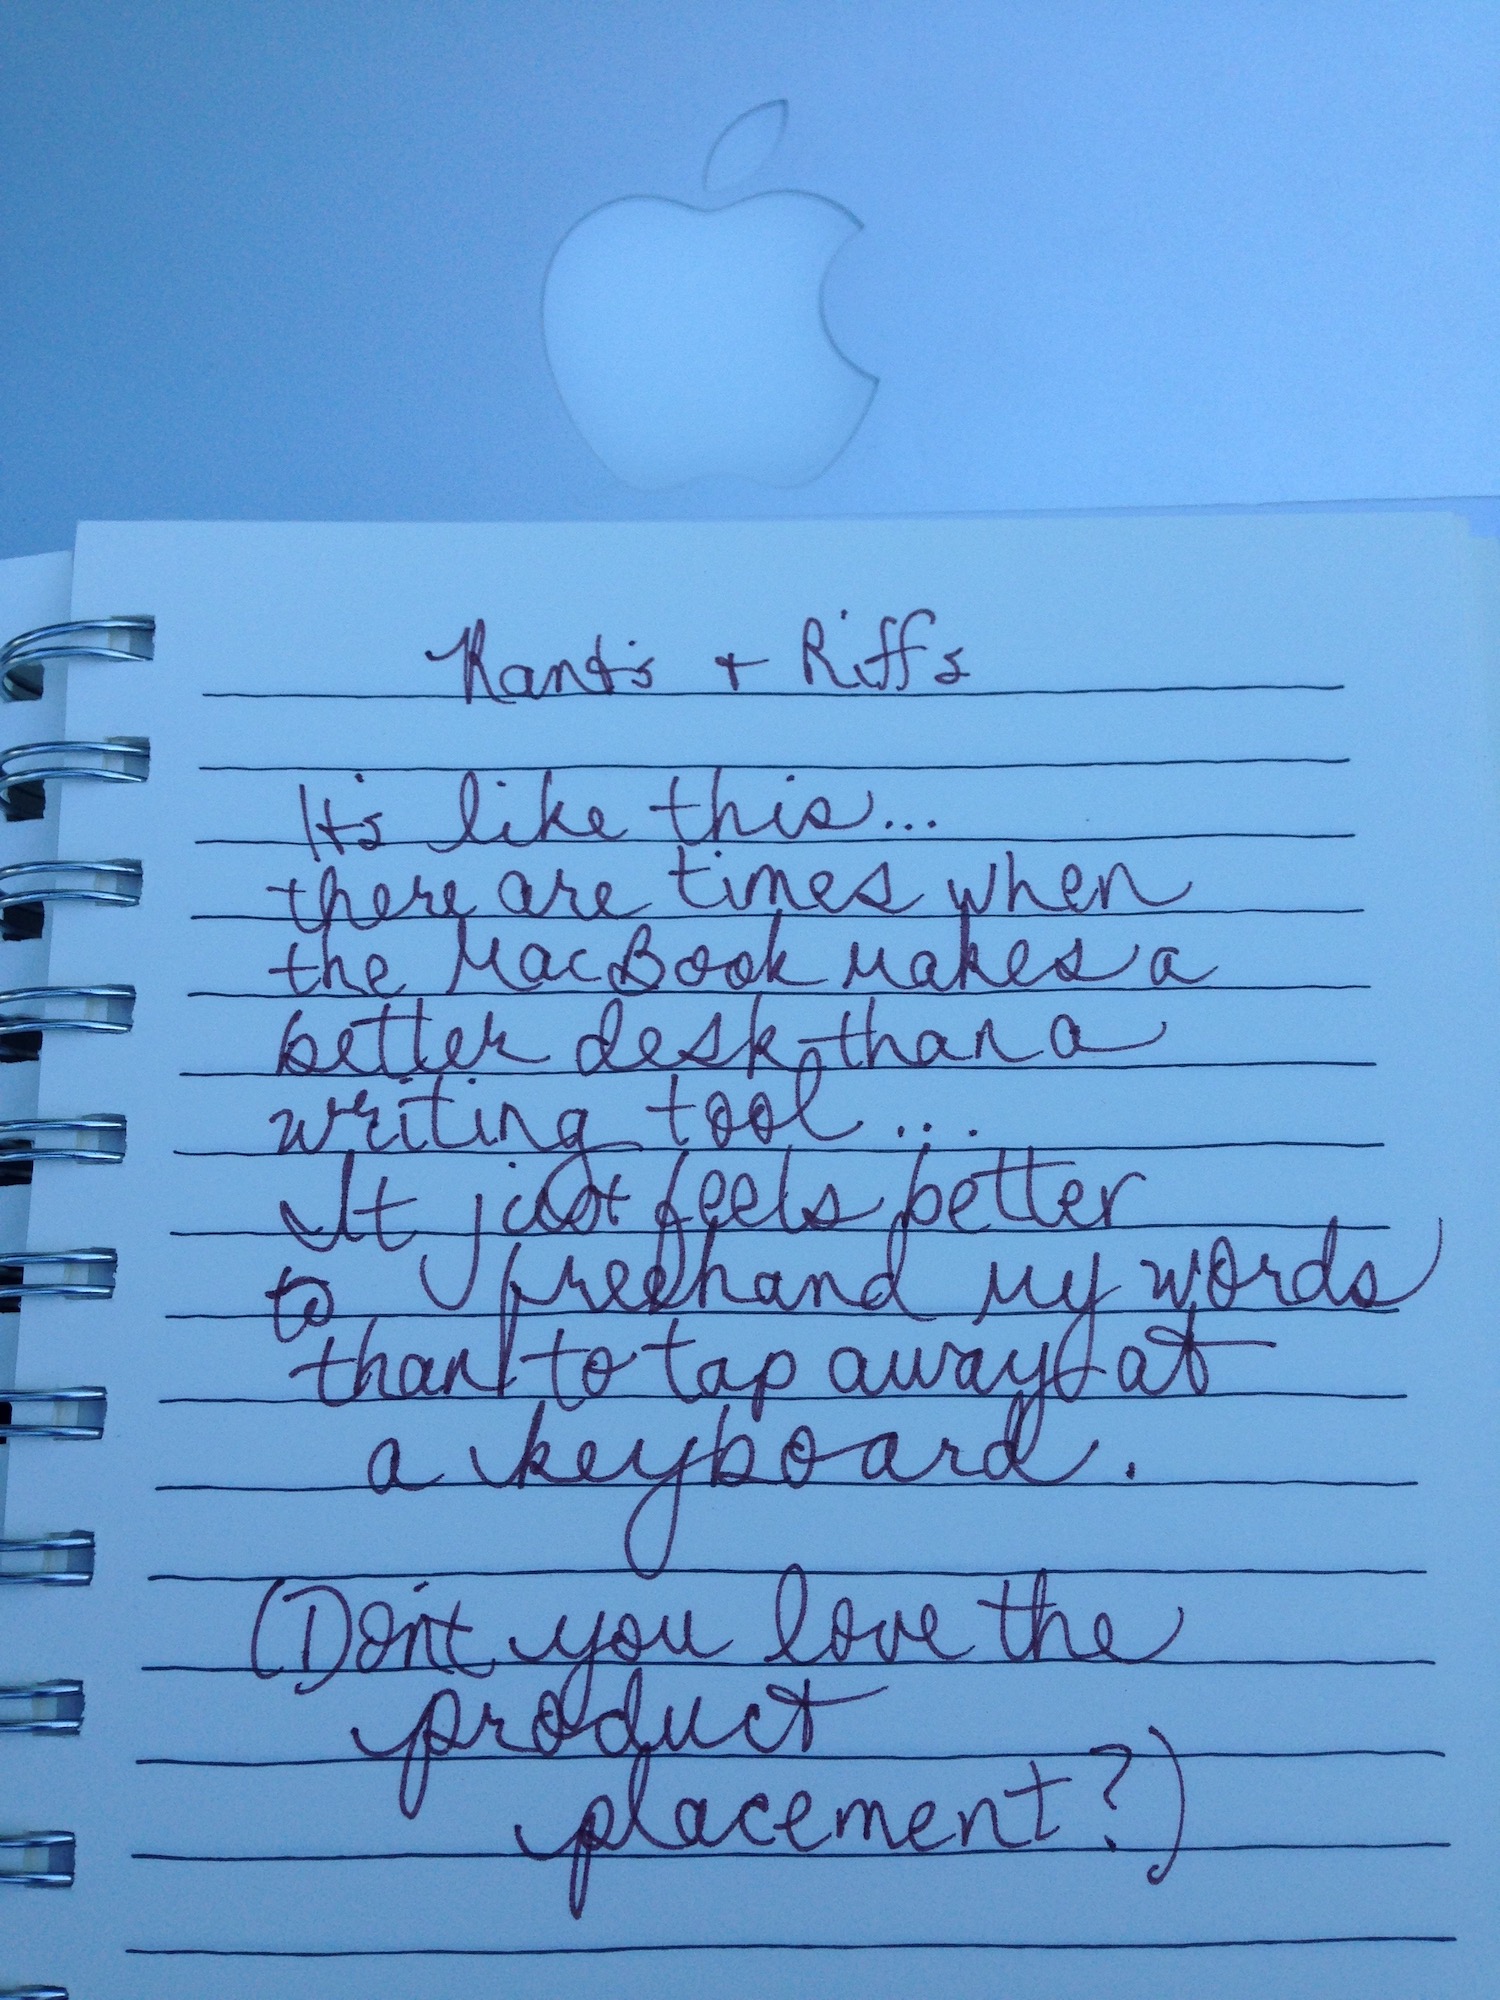 Rants + Riffs
It's like this...
there are times when
the MacBook makes a
better desk than a
writing tool...
It just feels better
to freehand my words
than to tap away at
a keyboard.
(Don't you love the
product
placement?)